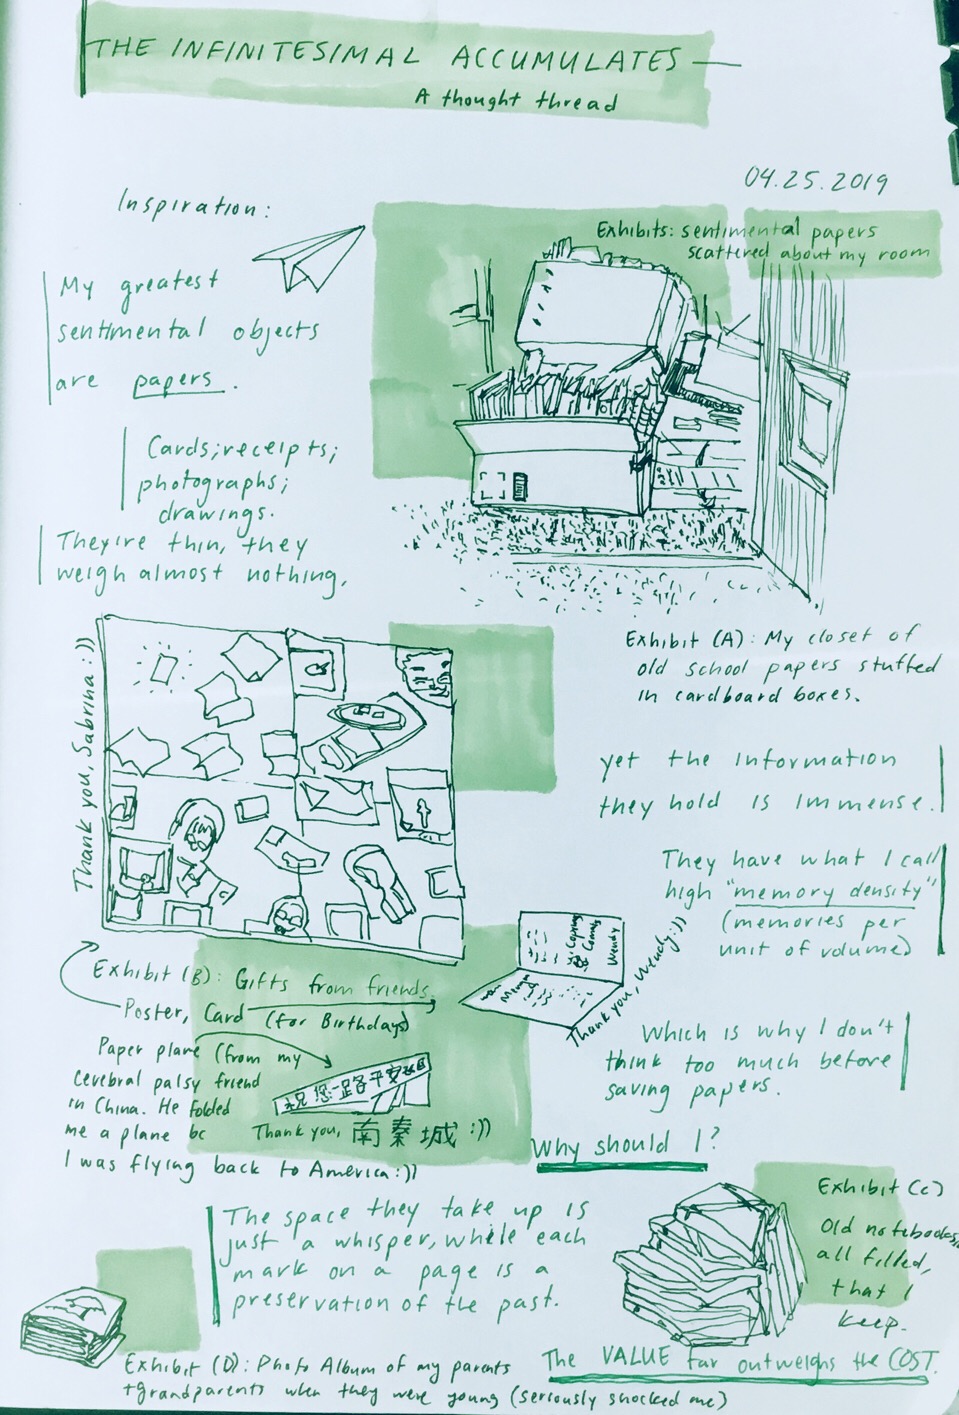 THE INFINITESIMAL ACCUMULATES —
A thought thread
04.25.2019
Inspiration:
Exhibits: sentimental papers
scattered about my room
My greatest
sentimental objects
are papers.
Cards; receipts;
photographs;
drawings.
They're thin, they
weigh almost nothing,
Exhibit (A): My closet of
old school papers stuffed
in cardboard boxes.
Thank you, Sabrina :))
yet the information
they hold is immense.
They have what I call
high "memory density"
(memories per
unit of volume)
Wendy
Thank you, Wendy :))
Exhibit (B): Gifts from friends.
Poster, Card (for Birthdays)
Paper plane (from my
cerebral palsy friend
in China. He folded
me a plane bc
I was flying back to America :))
祝您一路平安
Thank you, 南秦城 :))
Which is why I don't
think too much before
saving papers.
Why should I?
The space they take up is
just a whisper, while each
mark on a page is a
preservation of the past.
Exhibit (C)
Old notebooks,
all filled,
that I
keep.
Exhibit (D): Photo Album of my parents
+grandparents when they were young (seriously shocked me)
The VALUE far outweighs the COST.